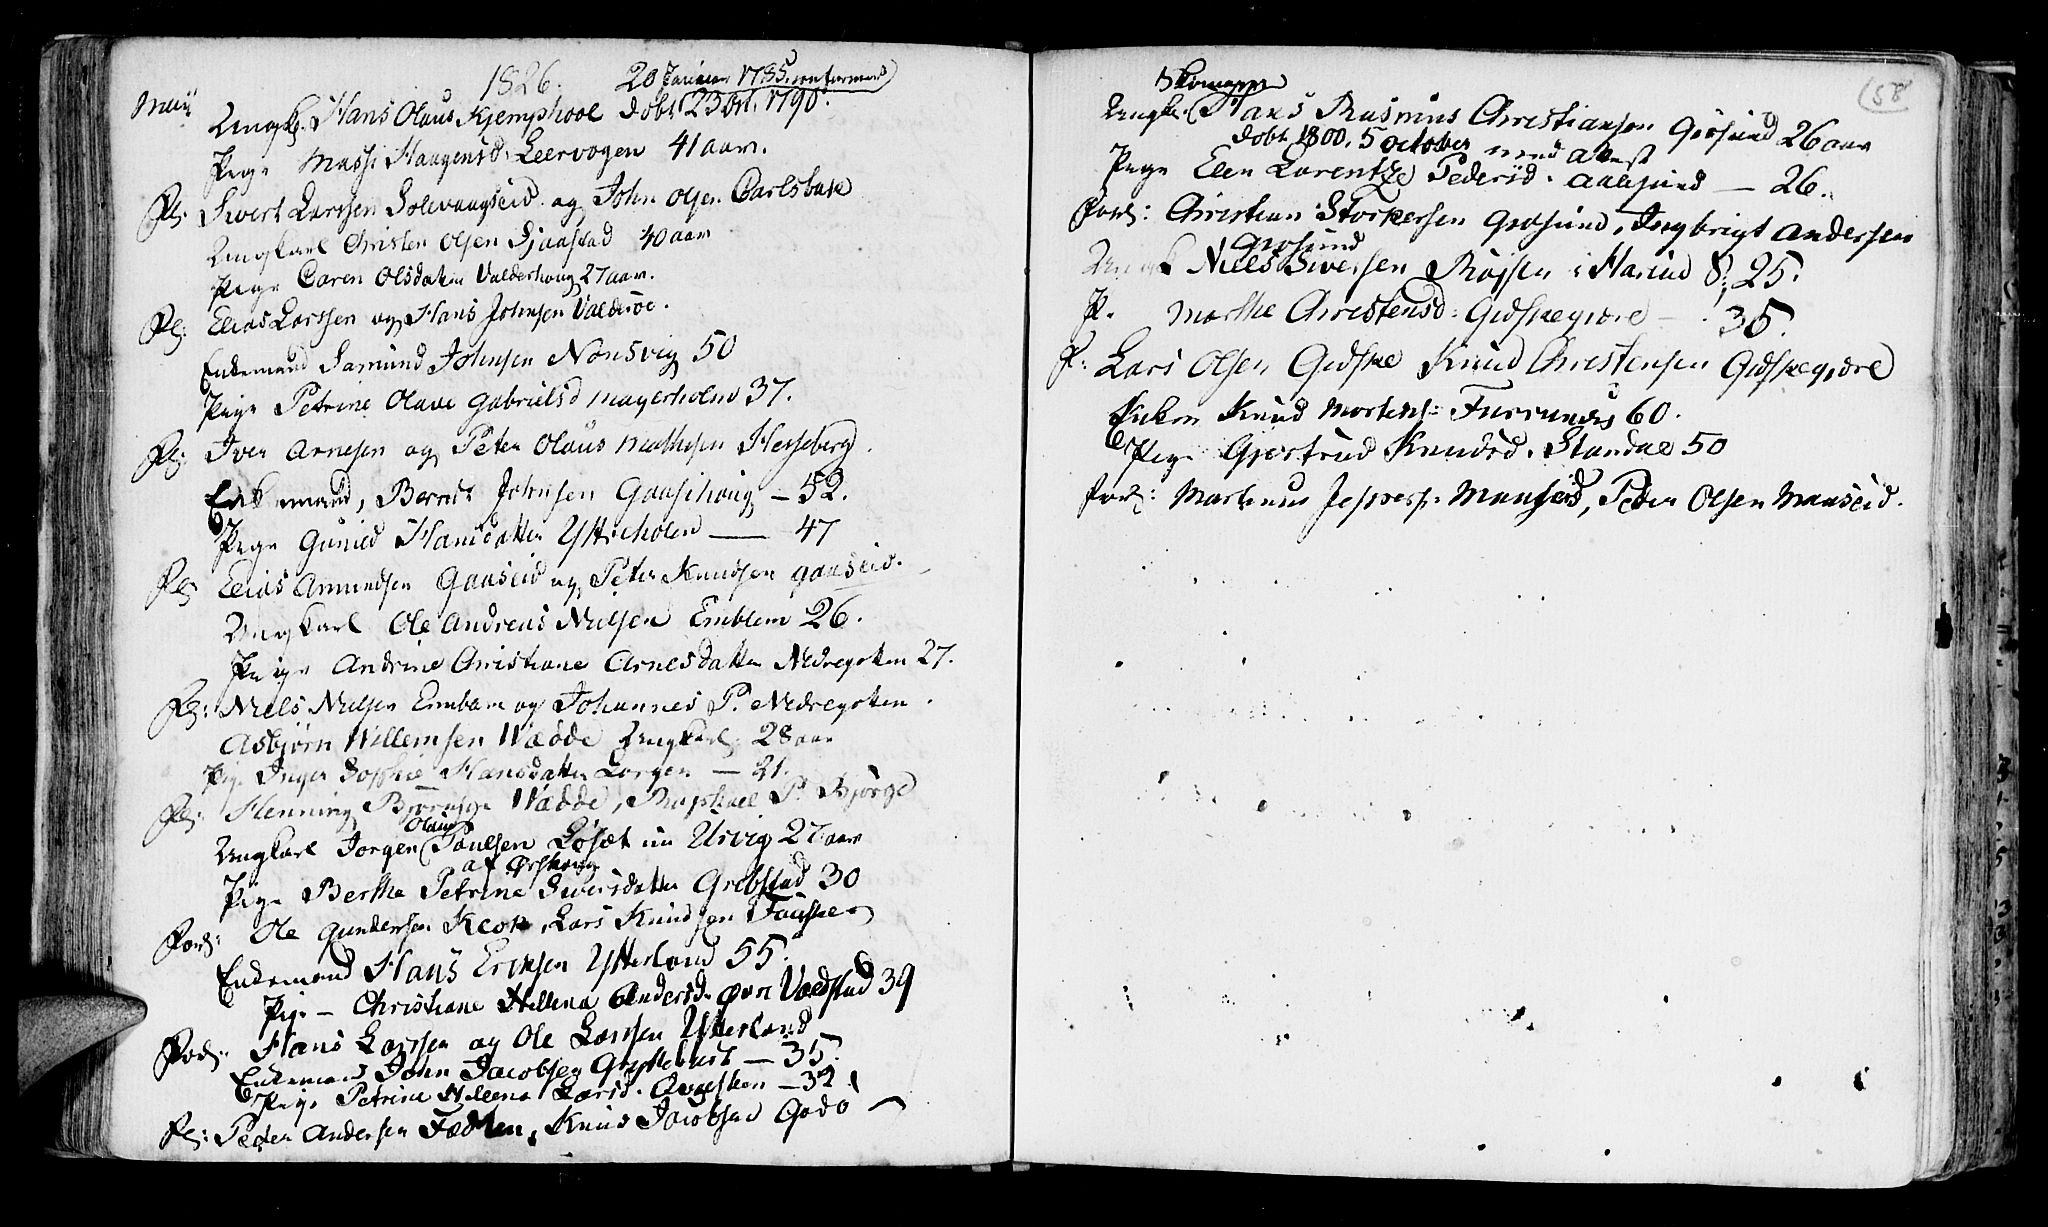 1826. 20 Januar 1785 confirmerd
Maij Ungk. Hans Olaus Kjemphool døbt 23 Oct. 1790.
Pige Massi Haagensd. Leervogen 41 aar.
Fl: Sivert Larssen Solevaagseid og John Olsen Carlsbak
Ungkarl Christen Olsen Sjaastad 40 aar
Pige Caren Olsdatter Valderhoug 27 aar.
Fl: Elias Larssen og Hans Johnsen Valderöe.
Enkemand Samund Johnsen Nonsvig 50
Pige Petrine Olave Gabrielsd Magerholm 37.
Fl: Iver Arnesen og Peter Olaus Mathisen Hesseberg.
Enkemand, Berndt Johnsen Gaasehoug – 52.
Pige Gunild Hansdatter Yttreholm — 47
Fl: Elias Amundsen Gaaseid og Peter Knudsen Gaaseid.
Ungkarl Ole Andreas Nielsen Emblem 26.
Pige Andrine Christiane Arnesdatter Nedregotten 27.
Fl: Niels Nielsen Emblem og Johannes P. Nedregotten.
Asbjörn Willemsen Wædde Ungkarl. 28 aar
Pige Inger Sophie Hansdatter Lorgen — 21.
Fl: Henning Björnsen Wædde, Raphael P. Bjørge
Olaus
Ungkarl Jorgen Poulsen Løset nu Urvig 27 aar
af Ørskoug
Pige Berthe Petrine Siversdatter Grebstad 30
Forl: Ole Gundersen Klok, Lars Knudsen Fauske
Enkemand Hans Ericksen Ytterland 55.
Pige – Christiane Hellena Andersd. Øvre Vædstad 39
Forl: Hans Larssen og Ole Larssen Ytterland
Enkemand John Jacobsen Gryttebust — 35.
Pige Petrine Hellena Larsd. — 32
Fl: Peder Andersen, Knud Jacobsen Godö

58
Ungk. Hans Rasmus Christiansen Giøsund 26 aar
døbt 1800. 5 October med attest
Pige Elen Lorentze Pedersd. Aalesund — 26.
Forl: Christian Storkersen Giøsund, Ingbrigt Andersen
Giøsund
Ungk Niels Siversen Röjsen i Harund S; 25.
P. Marthe Christensd: Gidskegjøre – 35.
F: Lars Olsen Gidske Knud Christensen Gidskegjøre
Enkem Knud Mortens: Furrunæs 60.
Pige Gjertrud Knudsd. Standal 50
Forl: Martinus Jespers: Mauseid, Peder Olsen Mauseid.